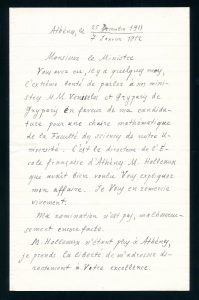 Athènes, le 25 Décembre 1911
7 Janvier 1912
Monsieur le Ministre
Vous avez eu, il y a quelques mois,
l'extrême bonté de parler à M. mini-
stres M. M. Veniselos et Grypary
Grypary en faveur de ma candida-
ture pour une chaire mathématique
de la Faculté des sciences de notre U-
niversité. C'est le directeur de l'É-
cole française d'Athènes M. Holleaux
que avait bien voulu Vous expliquer
mon affaire. Je Vous en remercie
vivement.
Ma nomination n'est pas, malheureu-
sement encore faite.
M. Holleaux n'étant plus à Athènes,
je prends la liberté de m'adresse di-
rectement à Votre excellence.